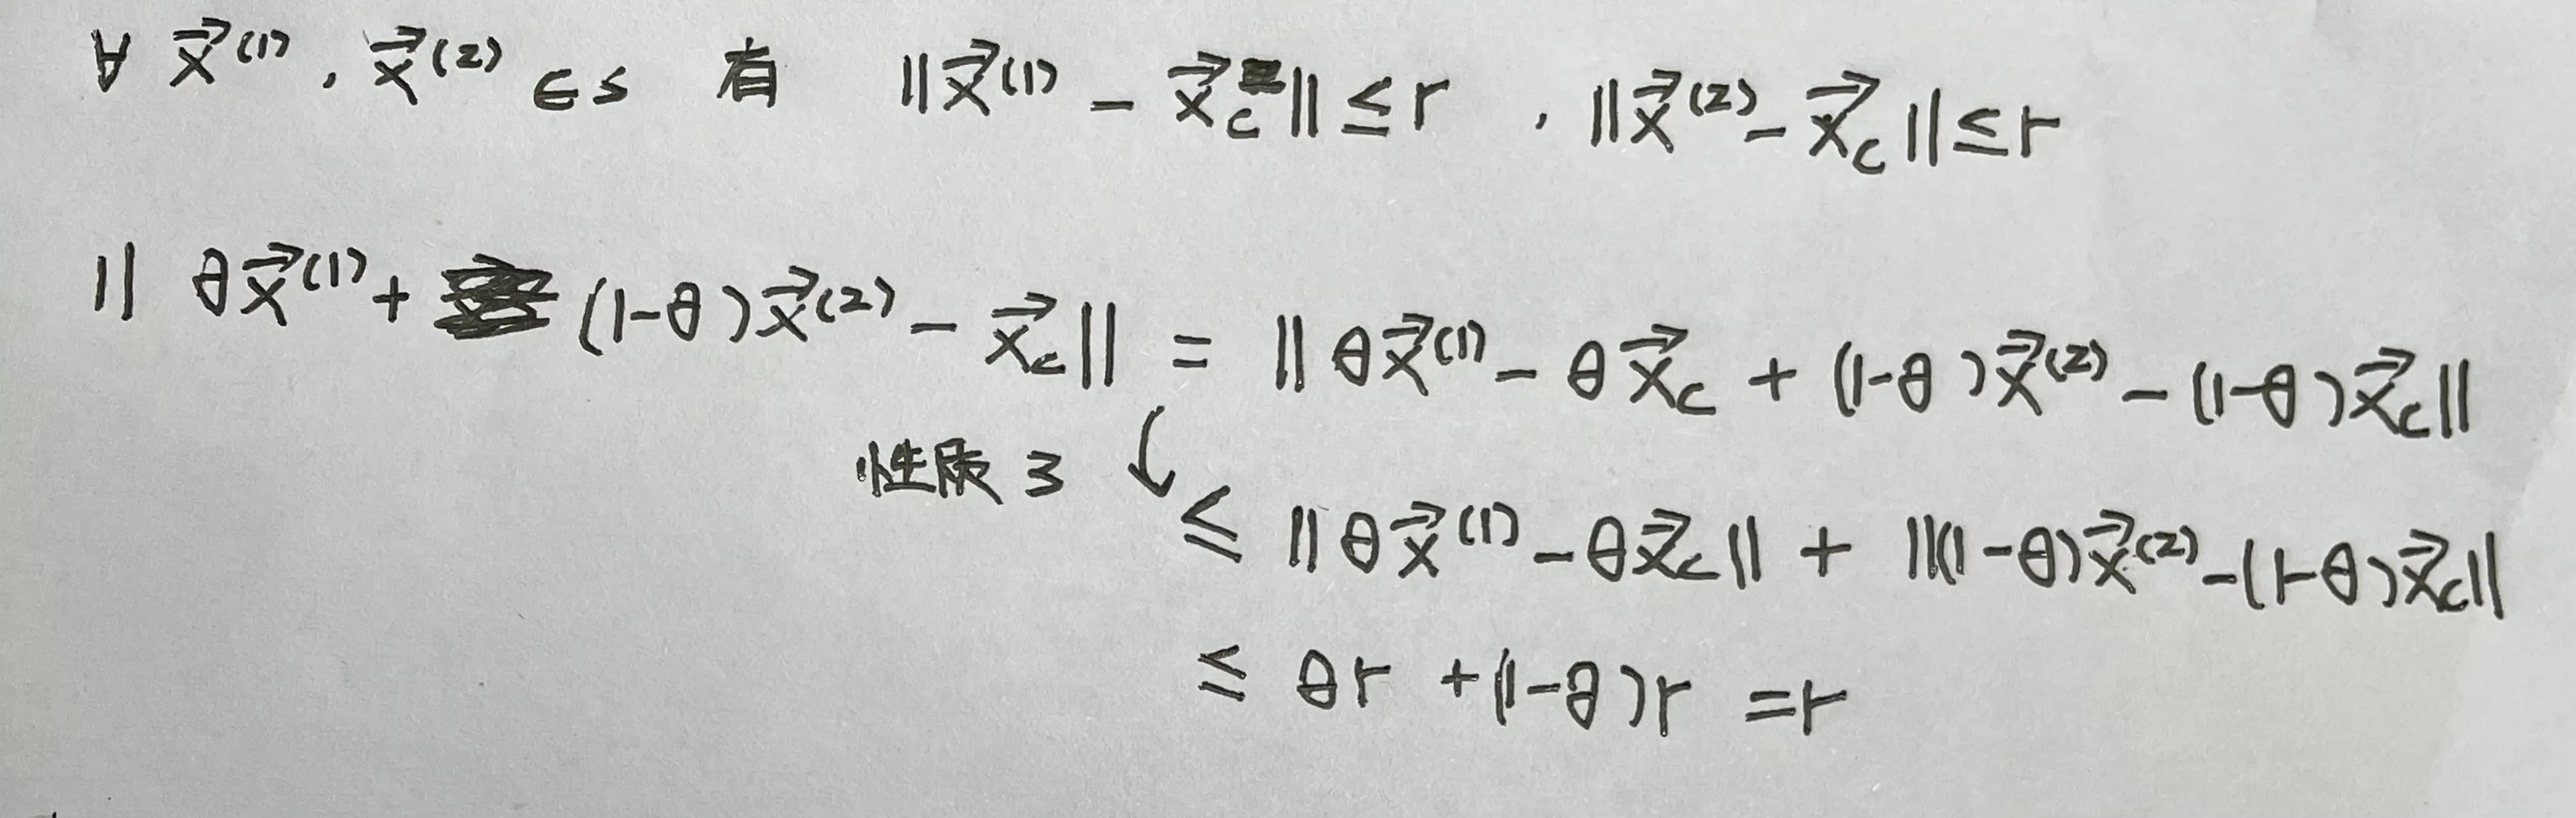 ∀ x⃗⁽¹⁾, x⃗⁽²⁾ ∈ S 有 ||x⃗⁽¹⁾ - x⃗_c|| ≤ r , ||x⃗⁽²⁾ - x⃗_c|| ≤ r
|| θx⃗⁽¹⁾ + (1-θ)x⃗⁽²⁾ - x⃗_c || = || θx⃗⁽¹⁾ - θx⃗_c + (1-θ)x⃗⁽²⁾ - (1-θ)x⃗_c ||
性质 3
≤ || θx⃗⁽¹⁾ - θx⃗_c || + ||(1-θ)x⃗⁽²⁾ - (1-θ)x⃗_c ||
≤ θr + (1-θ)r = r